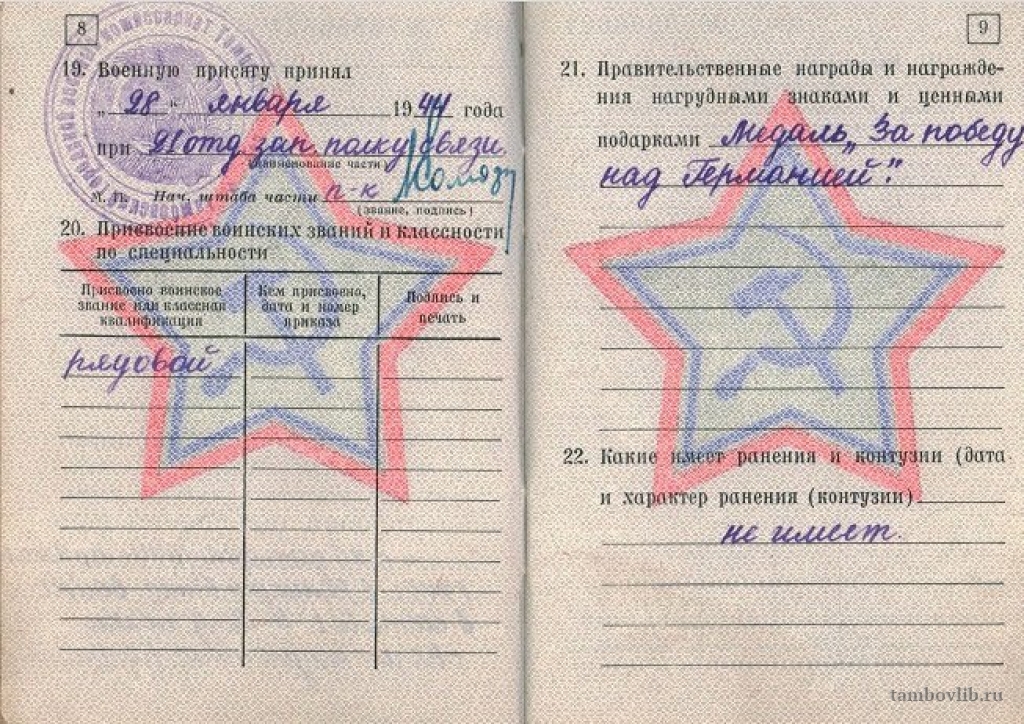 8
19. Военную присягу принял
„ 28 " января 1944 года
при 91 отд. зап. полку связи.
(наименование части)
М. П. Нач. штаба части п-к
(звание, подпись)
20. Присвоение воинских званий и классности
по специальности
Присвоено воинское звание или классная квалификация
Кем присвоено, дата и номер приказа
Подпись и печать
рядовой
9
21. Правительственные награды и награжде-
ния нагрудными знаками и ценными
подарками Медаль „За победу
над Германией".
22. Какие имеет ранения и контузии (дата
и характер ранения (контузии)
не имеет.
tambovlib.ru